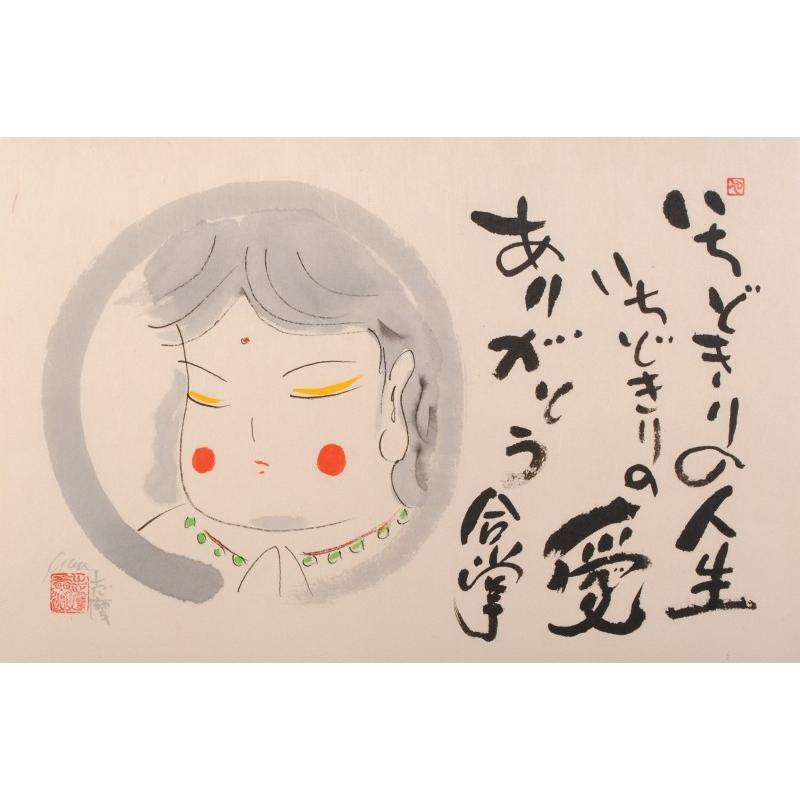 いちどきりの人生
いちどきりの愛
ありがとう
合掌